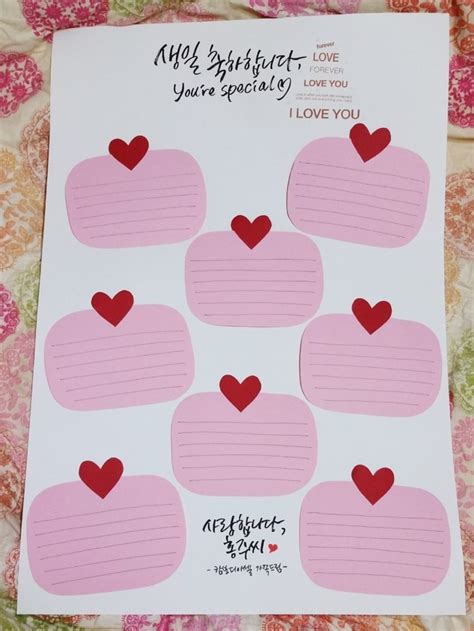 생일 축하합니다,
You're special♡
forever
LOVE
FOREVER
LOVE YOU
I LOVE YOU
사랑합니다,